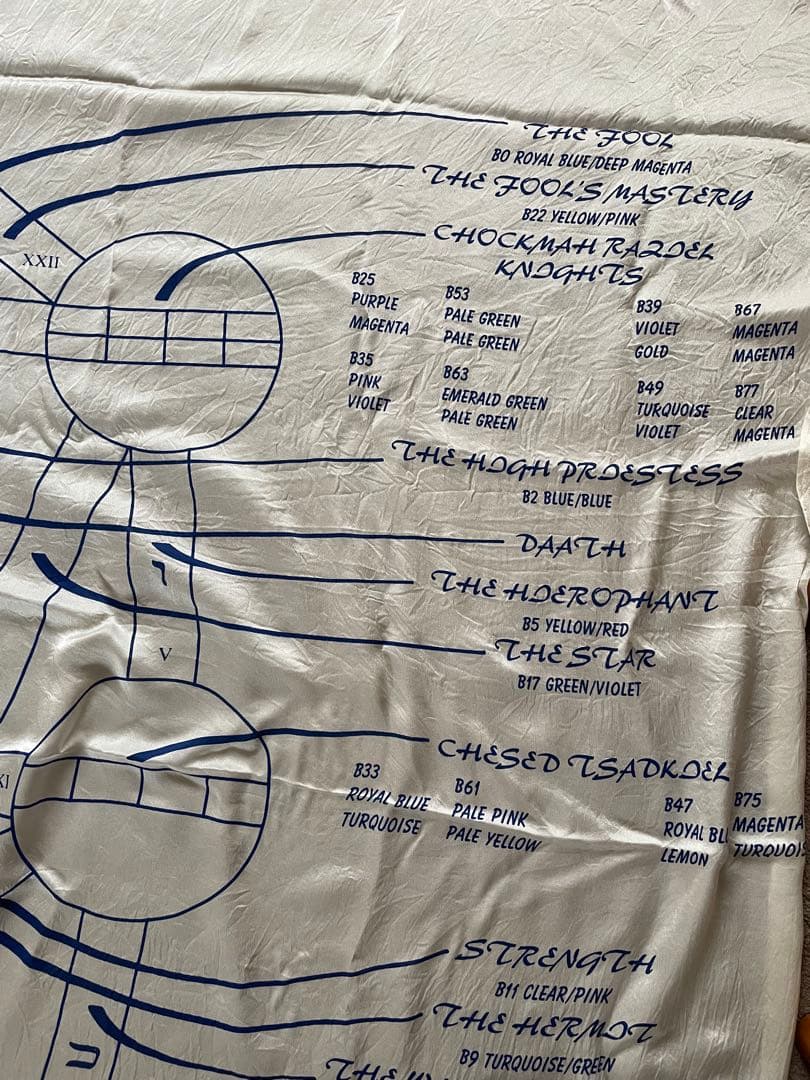 THE FOOL
B0 ROYAL BLUE/DEEP MAGENTA
THE FOOL'S MASTERY
B22 YELLOW/PINK
XXII
CHOCKMAH RAZIEL
KNIGHTS
B25 B53 B39 B67
PURPLE PALE GREEN VIOLET MAGENTA
MAGENTA PALE GREEN GOLD MAGENTA
B35 B63 B49 B77
PINK EMERALD GREEN TURQUOISE CLEAR
VIOLET PALE GREEN VIOLET MAGENTA
THE HIGH PRIESTESS
B2 BLUE/BLUE
DAATH
THE HIEROPHANT
B5 YELLOW/RED
V
THE STAR
B17 GREEN/VIOLET
CHESED TSADKIEL
B33 B61 B47 B75
ROYAL BLUE PALE PINK ROYAL BL MAGENTA
TURQUOISE PALE YELLOW LEMON TURQUOI
STRENGTH
B11 CLEAR/PINK
THE HERMIT
B9 TURQUOISE/GREEN
THE